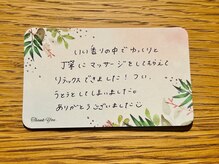 いい香りの中でゆっくりと
丁寧にマッサージをしてもらえて
リラックスできました！つい、
うとうとしてしまいました。
ありがとうございました
Thank You